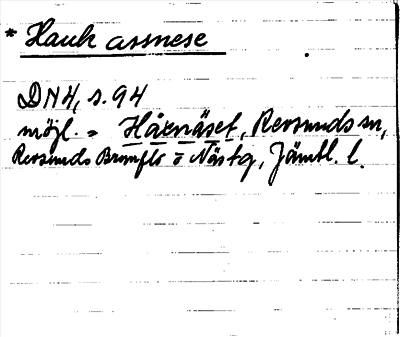 * Hauk assnese
DN 4, s. 94
möjl. = Håknäset, Revsunds sn,
Revsunds Brunflo o Näs tg, Jämtl. l.